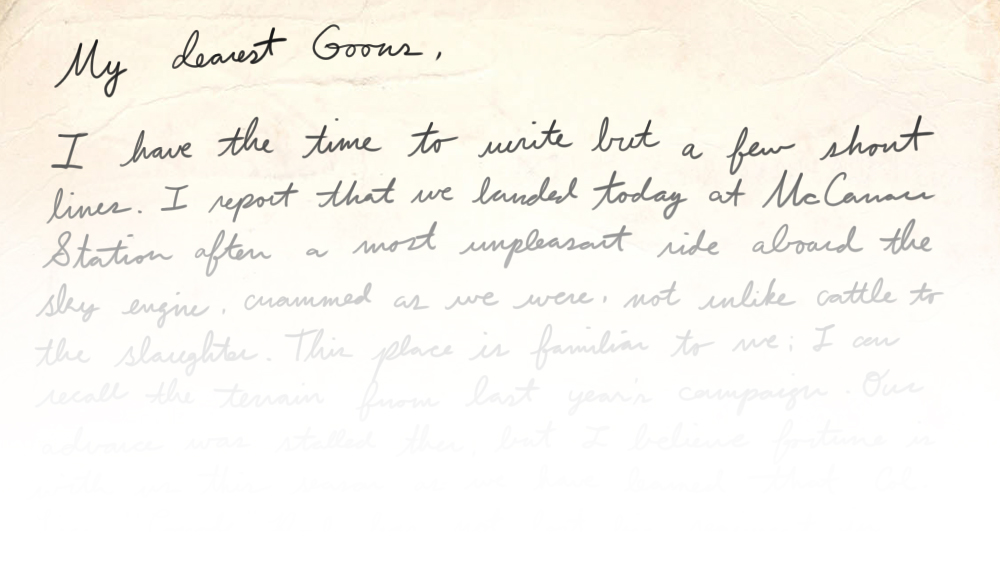 My dearest Goons,
I have the time to write but a few short
lines. I report that we landed today at McCarran
Station after a most unpleasant ride aboard the
sky engine, crammed as we were, not unlike cattle to
the slaughter. This place is familiar to me; I can
recall the terrain from last year's campaign. Our
advance was stalled then, but I believe fortune is
with us this season as we have learned that